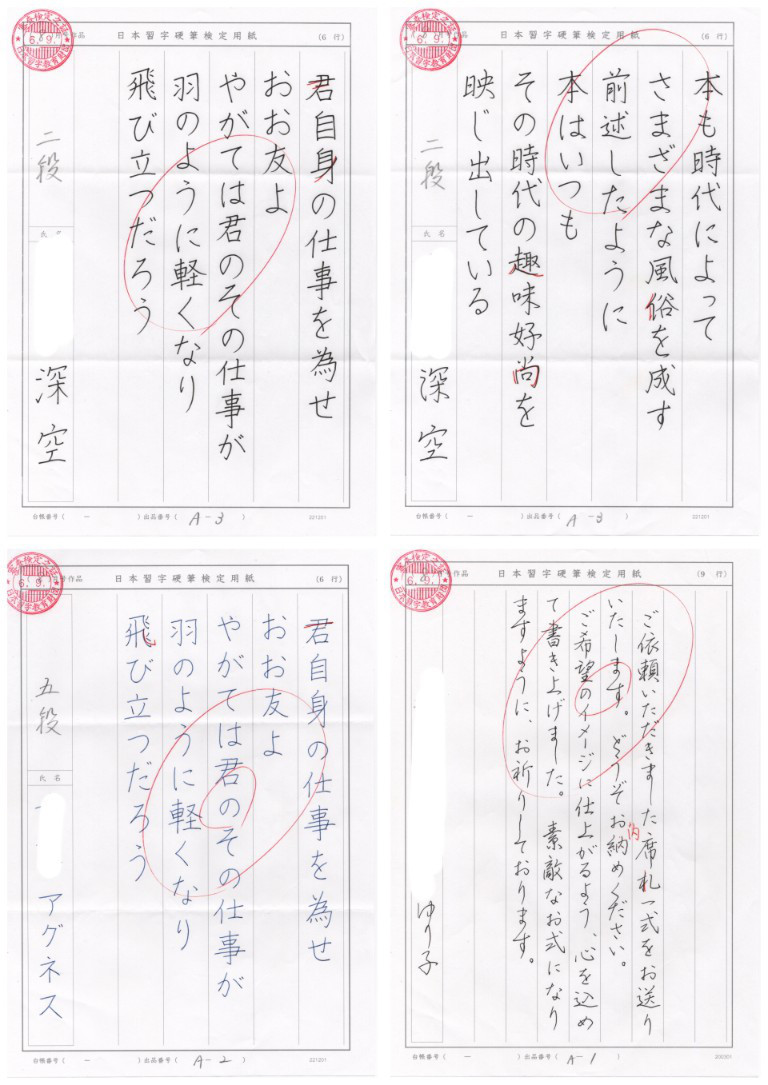 日本習字硬筆検定用紙
(6 行)
君自身の仕事を為せ
おお友よ
やがては君のその仕事が
羽のように軽くなり
飛び立つだろう
二段
深空
台帳番号( - )出品番号( A-3 )
221201
日本習字硬筆検定用紙
(6 行)
本も時代によって
さまざまな風俗を成す
前述したように
本はいつも
その時代の趣味好尚を
映じ出している
二段
氏名
深空
台帳番号( - )出品番号( A-3 )
221201
日本習字硬筆検定用紙
(6 行)
君自身の仕事を為せ
おお友よ
やがては君のその仕事が
羽のように軽くなり
飛び立つだろう
五段
氏名
アグネス
台帳番号( - )出品番号( A-2 )
221201
日本習字硬筆検定用紙
(9 行)
ご依頼いただきました席札一式をお送り
いたします。どうぞお納めください。
ご希望のイメージに仕上がるよう、心を込め
て書き上げました。 素敵なお式になり
ますように、お祈りしております。
ゆり子
台帳番号( - )出品番号( A-1 )